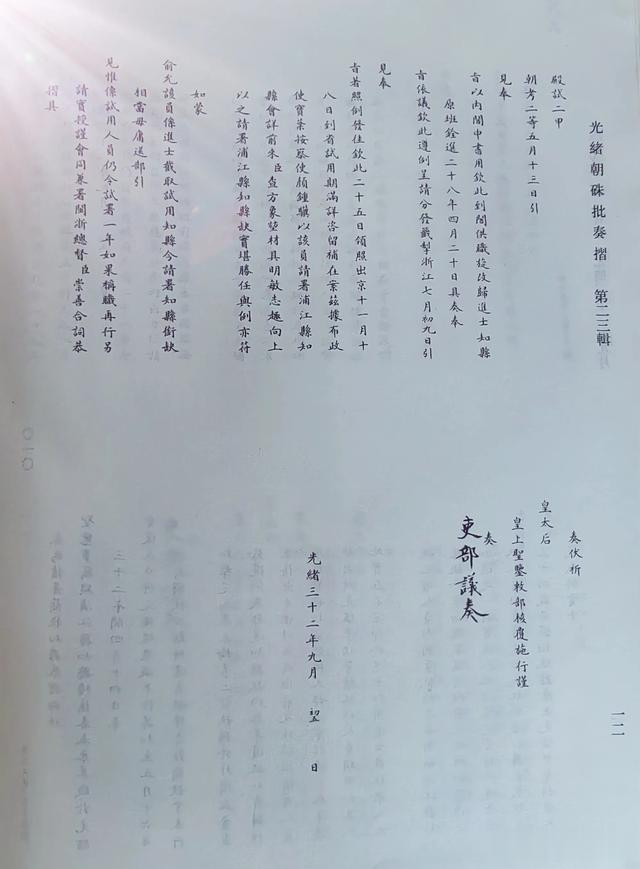 光緒朝硃批奏摺 第二三輯
一一二
殿試二甲
朝考二等五月十三日引
見奉
旨以內閣中書用欽此到閣供職旋改歸進士知縣
原班銓選二十八年四月二十日具奏奉
旨依議欽此遵例呈請分發籤掣浙江七月初九日引
見奉
旨著照例發往欽此二十五日領照出京十一月十
八日到省試用期滿詳咨留補在案茲據布政
使寶棻按察使顏鍾驥以該員請署浦江縣知
縣會詳前來臣查方象堃材具明敏志趣向上
以之請署浦江縣知縣缺實堪勝任與例亦符
如蒙
俞允該員係進士截取試用知縣今請署知縣銜缺
相當毋庸送部引
見惟係試用人員仍令試署一年如果稱職再行另
請實授謹會同兼署閩浙總督臣崇善合詞恭
摺具
奏伏祈
皇太后
皇上聖鑒敕部核覆施行謹
奏
吏部議奏
光緒三十二年九月 初 日
〇一〇